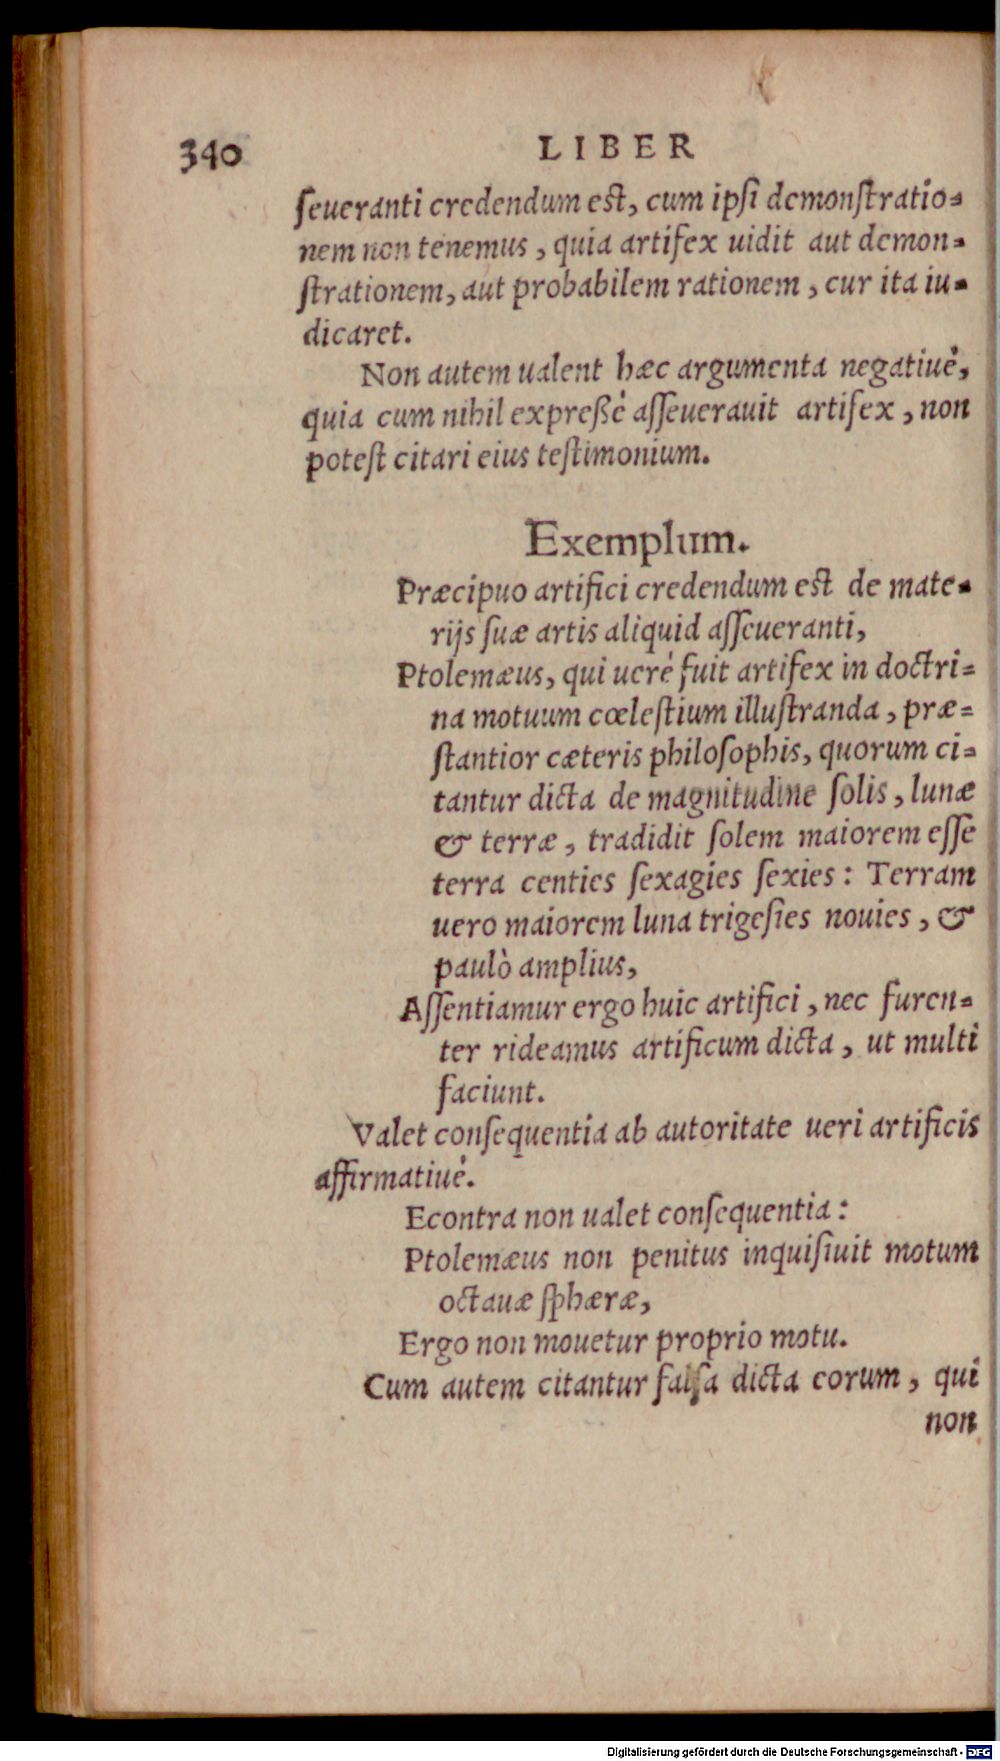 340 LIBER
ſeueranti credendum eſt, cum ipſi demonſtratio-
nem non tenemus, quia artifex uidit aut demon-
ſtrationem, aut probabilem rationem, cur ita iu-
dicaret.
Non autem ualent hæc argumenta negatiuè,
quia cum nihil expreßè aſſeuerauit artifex, non
poteſt citari eius teſtimonium.
Exemplum.
Præcipuo artifici credendum eſt de mate-
rijs ſuæ artis aliquid aſſeueranti,
Ptolemæus, qui uerè fuit artifex in doctri-
na motuum cœleſtium illuſtranda, præ-
ſtantior cæteris philoſophis, quorum ci-
tantur dicta de magnitudine ſolis, lunæ
& terræ, tradidit ſolem maiorem eſſe
terra centies ſexagies ſexies: Terram
uero maiorem luna trigeſies nouies, &
paulò amplius,
Aſſentiamur ergo huic artifici, nec furen-
ter rideamus artificum dicta, ut multi
faciunt.
Valet conſequentia ab autoritate ueri artificis
affirmatiuè.
Econtra non ualet conſequentia:
Ptolemæus non penitus inquiſiuit motum
octauæ ſphæræ,
Ergo non mouetur proprio motu.
Cum autem citantur falſa dicta eorum, qui
non
Digitalisierung gefördert durch die Deutsche Forschungsgemeinschaft - DFG